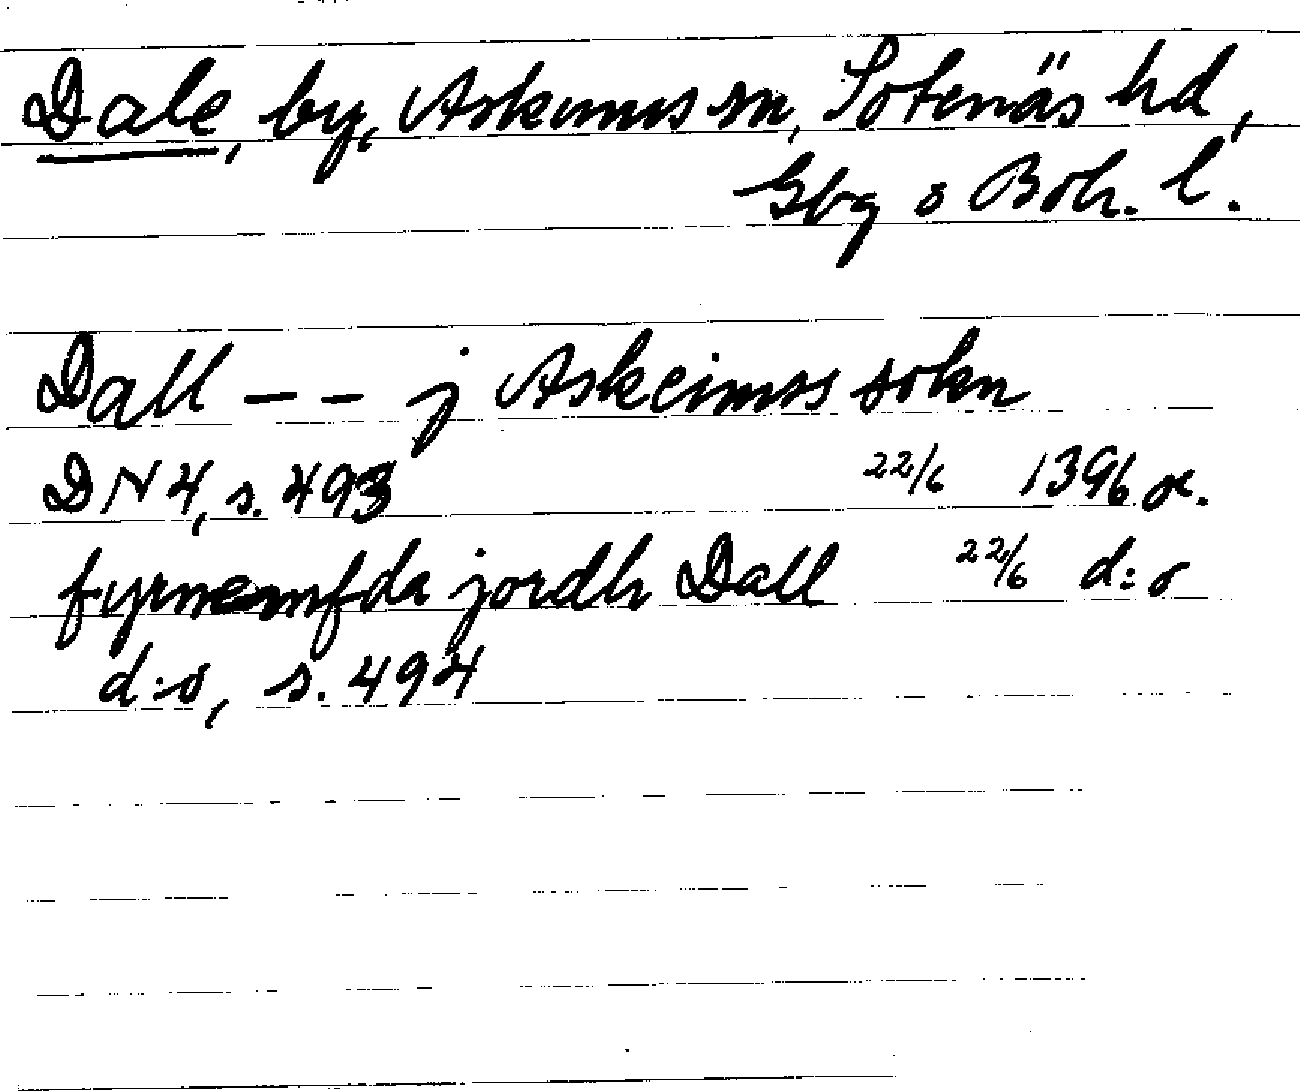 Dale, by, Askums sn, Sotenäs hd,
Gbg o Boh. l.
Dall - - j Askeimss sokn
DN 4, s. 493 22/6 1396 or.
fyrnemfda jordh Dall 22/6 d:o
d:o, s. 494